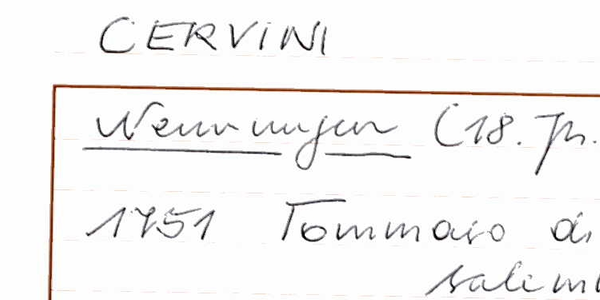 CERVINI
Nennungen (18. Jh.
1751 Tommaso di
Salimb